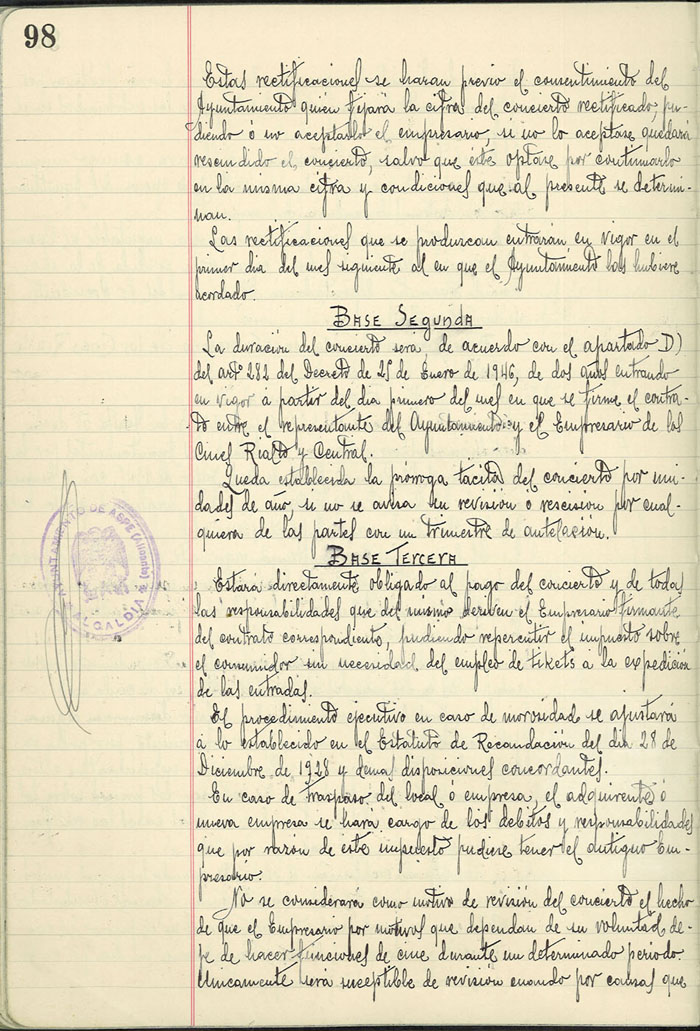 98
Estas rectificaciones se haran previo el consentimiento del
Ayuntamiento quien fijará la cifra del concierto rectificado, pu-
diendo ó no aceptarlo el empresario, si no lo aceptase quedará
rescindido el concierto, salvo que éste optase por continuarlo
en la misma cifra y condiciones que al presente se determi-
nan.
Las rectificaciones que se produzcan entrarán en vigor en el
primer dia del mes siguiente al en que el Ayuntamiento las hubiere
acordado.
BASE SEGUNDA
La duración del concierto será, de acuerdo con el apartado D)
del artº 282 del Decreto de 25 de Enero de 1946, de dos años entrando
en vigor a partir del dia primero del mes en que se firme el contra-
to entre el representante del Ayuntamiento y el Empresario de los
Cines Rialto y Central.
Queda establecida la prorroga tacita del concierto por uni-
dades de año, si no se avisa su revisión ó rescisión por cual-
quiera de las partes con un trimestre de antelación.
BASE TERCERA
Estará directamente obligado al pago del concierto y de todas
las responsabilidades que del mismo deriven el Empresario firmante
del contrato correspondiente, pudiendo repercutir el impuesto sobre
el consumidor sin necesidad del empleo de tikets a la expedición
de las entradas.
El procedimiento ejecutivo en caso de morosidad se ajustará
á lo establecido en el Estatuto de Recaudación del dia 28 de
Diciembre de 1928 y demas disposiciones concordantes.
En caso de traspaso del local ó empresa, el adquirente ó
nueva empresa se hara cargo de los debitos y responsabilidades
que por razón de este impuesto pudiese tener el antiguo Em-
presario
No se considerará como motivo de revisión del concierto el hecho
de que el Empresario por motivos que dependan de su voluntad de-
je de hacer funciones de cine durante un determinado periodo.
Unicamente será suceptible de revisión cuando por causas que
AYUNTAMIENTO DE ASPE (Alicante)
ALCALDIA